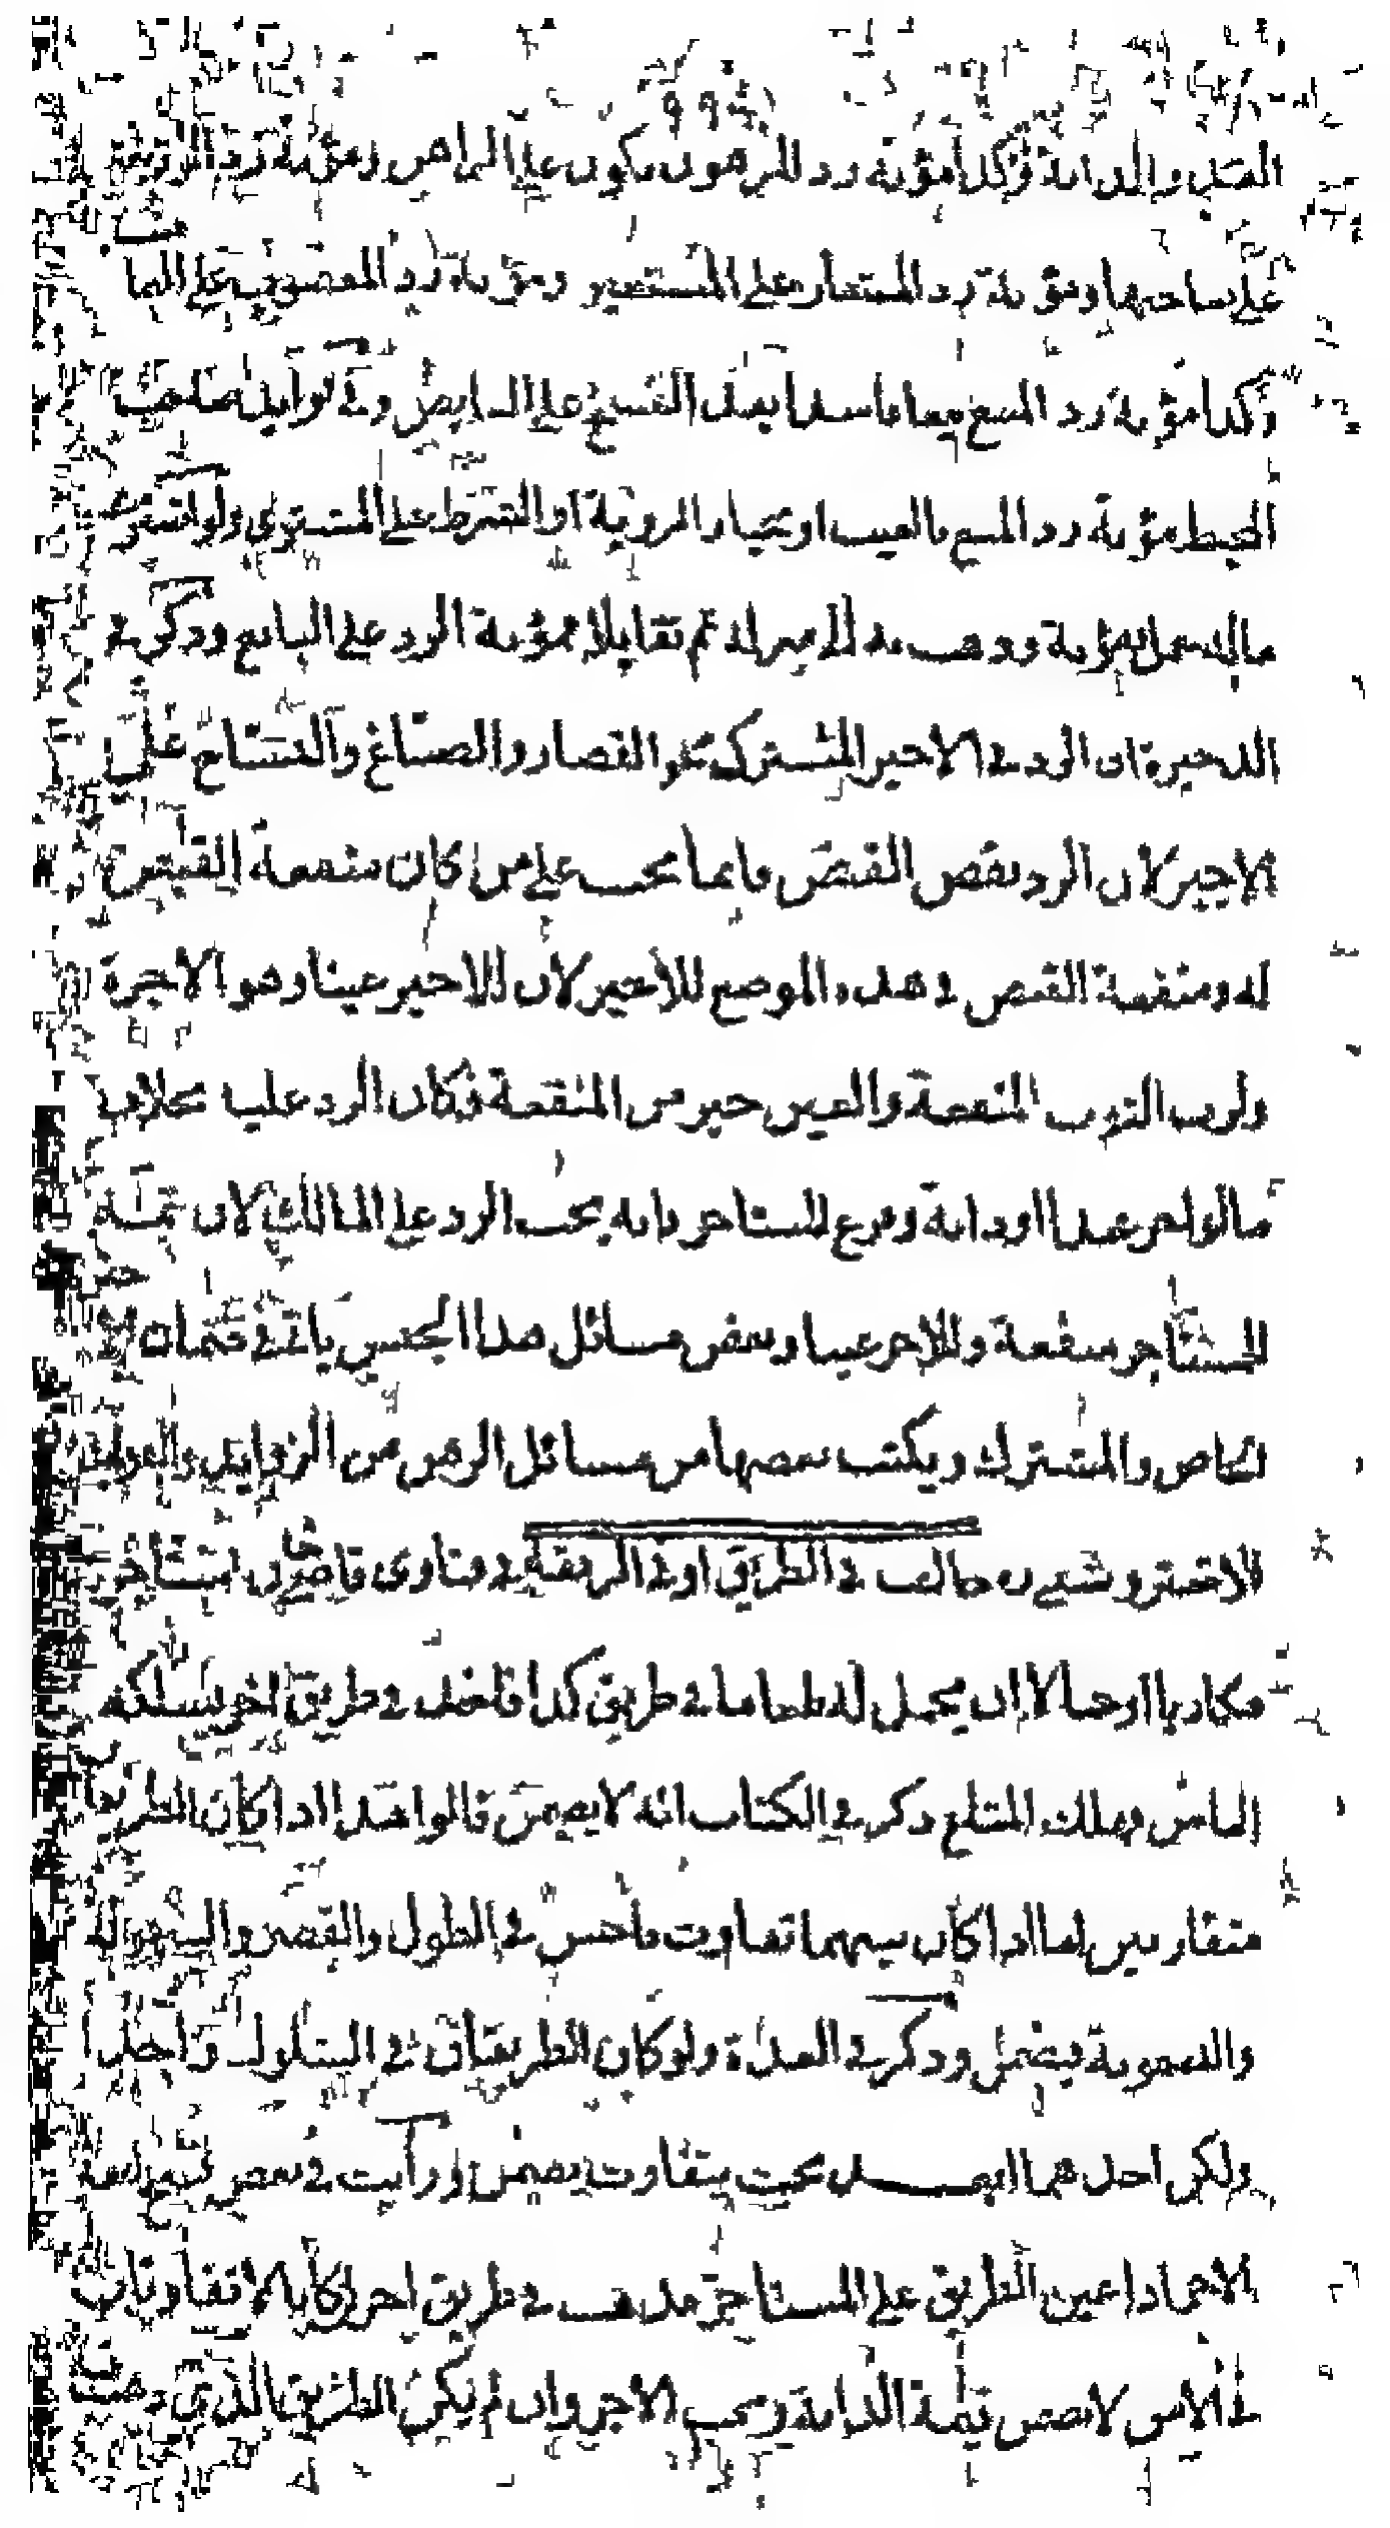 العبد والدابة وكذا مؤنة رد المرهون يكون على الراهن ومؤنة رد الوديعة
على صاحبها ومؤنة رد المستعار على المستعير ومؤنة رد المغصوب على الغاصب
وكذا مؤنة رد المبيع بيعا فاسدا بعد الفسخ على القابض وفي فوايد صاحب
المحيط مؤنة رد المبيع بالعيب او بخيار الروية او الشرط على المشتري ولو اشترى
ماله حمل ومؤنة وذهب به الى منزله ثم تقايلا فمؤنة الرد على البايع وذكر في
الذخيرة ان الرد في الاجير المشترك نحو القصار والصباغ والنساج على
الاجير لان الرد نقض القبض فانما يجب على من كان منفعة القبض
له ومنفعة القبض في هذه المواضع للاجير لان للاجير عينا وهو الاجرة
ولرب الثوب المنفعة والعين خير من المنفعة فكان الرد عليه بخلاف
ما لو اجر عبدا او دابة وفرغ المستاجر فانه يجب الرد على المالك لان ثمة
للمستاجر منفعة وللاجر عينا وبعض مسائل هذا الجنس ياتي في ضمان الاجير
الخاص والمشترك ويكتب بعضها من مسائل الرهن من الزوايد والفوايد
الاختروشني ره خالف في الطريق او في الرفقة في فتاوى قاضي خان استاجر
مكاريا او حمالا ان يحمل له طعاما في طريق كذا فاخذ في طريق اخر يسلكه
الناس وهلك المتاع ذكر في الكتاب انه لا يضمن قالوا هذا اذا كان الطريقان
متقاربين اما اذا كان بينهما تفاوت فاحش في الطول والقصر والسهولة
والصعوبة فيضمن وذكر في العدة ولو كان الطريقان في السلوك واحدا
ولكن احدهما ابعد بحيث يتفاوت يضمن ورايت في بعض
الاجير اذا عين الطريق على المستاجر فذهب في طريق اخر ان كانا لا تفاوتان
في الامن لا يضمن قيمة الدابة ويجب الاجر وان لم يكن الطريق الذي ذهب